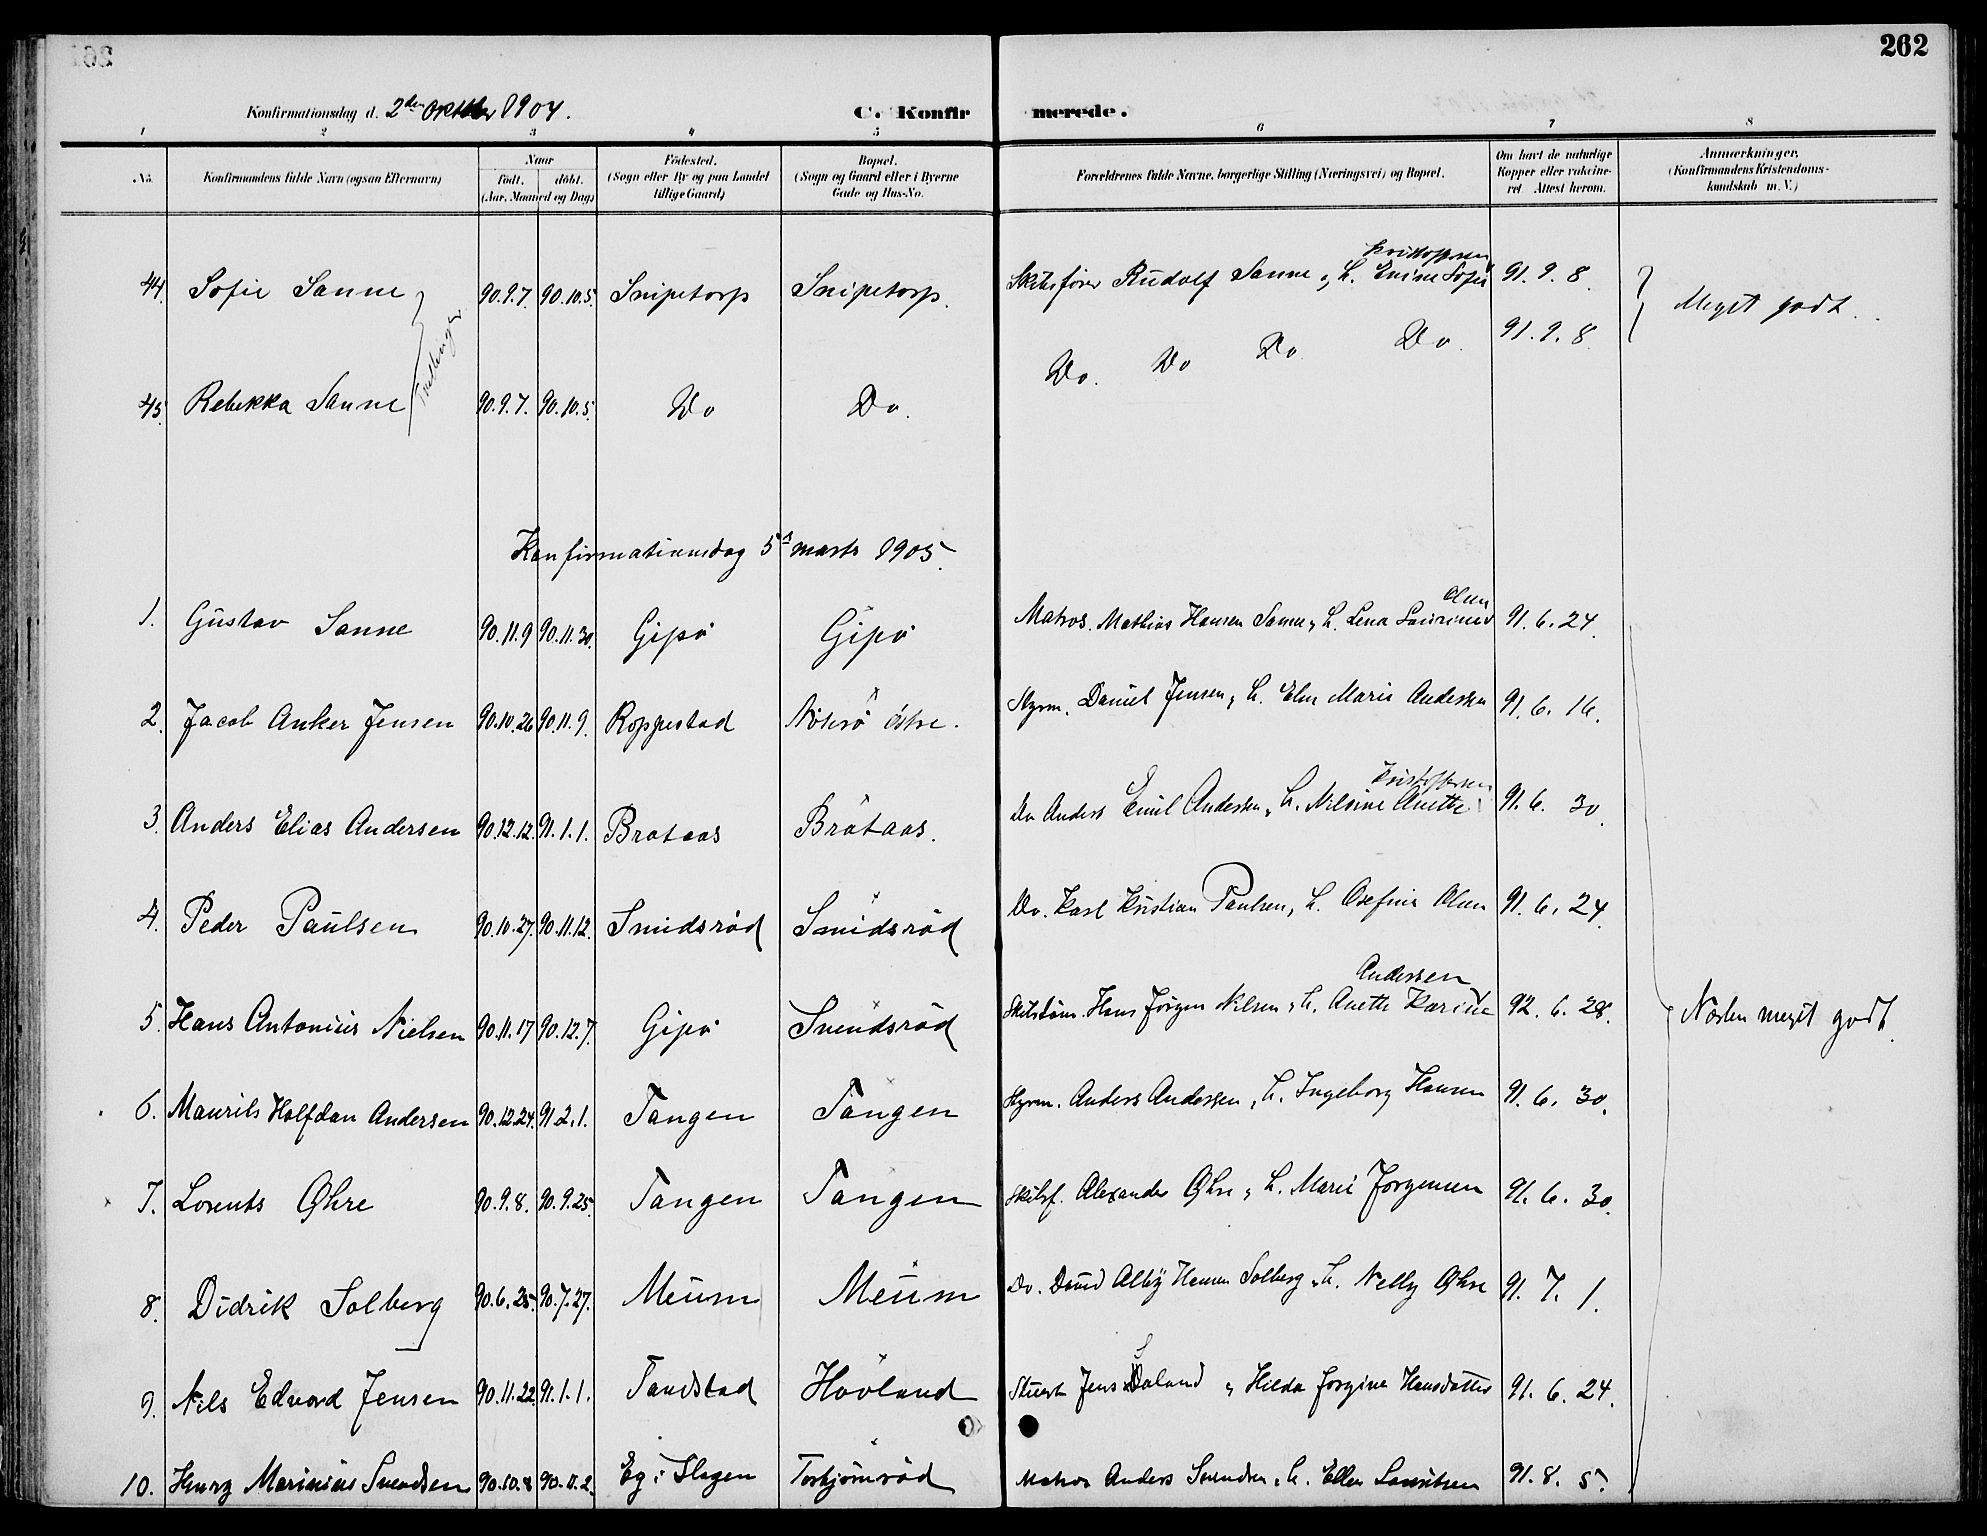 262
Konfirmationsdag d. 2den Oktbr 1904.
C. Konfirmerede.
1 2 3 4 5 6 7 8
No.
Konfirmandens fulde Navn (ogsaa Efternavn)
Naar
født. døbt.
(Aar, Maaned og Dag)
Fødested.
(Sogn eller By og paa Landet
tillige Gaard)
Bopæl.
(Sogn og Gaard eller i Byerne
Gade og Hus-No.
Forældrenes fulde Navne, borgerlige Stilling (Næringsvei) og Bopæl.
Om havt de naturlige
Kopper eller vakcine-
ret Attest herom.
Anmærkninger.
(Konfirmandens Kristendoms-
kundskab m. V.)
44. Sofie Sanne 90.9.7. 90.10.5. Snipetorp Snipetorp. Skibsfører Rudolf Sanne, h. Enine Sofie Kristoffersen 91.9.8.
Tvillinger
Meget godt.
45. Rebekka Sanne 90.9.7. 90.10.5. Do Do. Do. Do Do Do. 91.9.8.
Konfirmationsdag 5te marts 1905.
1. Gustav Sanne 90.11.9 90.11.30. Gipø Gipø Matros. Mathias Hansen Sanne, h. Lena Laurine Olsen 91.6.24.
2. Jacob Anker Jensen 90.10.26 90.11.9. Roppestad østre. Styrm. Daniel Jensen, h. Elen Marie Andersen 91.6.16.
3. Anders Elias Andersen 90.12.12. 91.1.1. Brataas Bråtaas. Do Anders Emil Andersen, h. Nilsine Anette Kristoffersen 91.6.30.
4. Peder Paulsen 90.10.27. 90.11.12. Smidsrød Smidsrød Do. Karl Kristian Paulsen, h. Josefine Olsen 91.6.24.
5. Hans Antonius Nielsen 90.11.17 90.12.7. Gipø Svendsrød Hans Jørgen Nilsen, h. Anette Karine Andersen 92.6.28.
Næsten meget godt.
6. Maurits Halfdan Andersen 90.12.24. 91.2.1. Tangen Tangen Styrm. Anders Andersen, h. Ingeborg Hansen 91.6.30.
7. Lorents Øhre 90.9.8. 90.9.25. Tangen Tangen Skibsf. Alexander Øhre, h. Marie Jørgensen 91.6.30.
8. Didrik Solberg 90.6.25. 90.7.27. Meum Meum Do. David Hansen Solberg, h. Nelly Øhre 91.7.1.
9. Nils Edvard Jensen 90.11.22 91.1.1. Tandstad Hövland Stuert Jens Hilda Jorgine Hansdatter 91.6.24.
10. Henry Marinius Svendsen 90.10.8 90.11.2. Eg i Slagen Torbjørnrød Matros Anders Svendsen, h. Ellen Lauritsen 91.8.5.